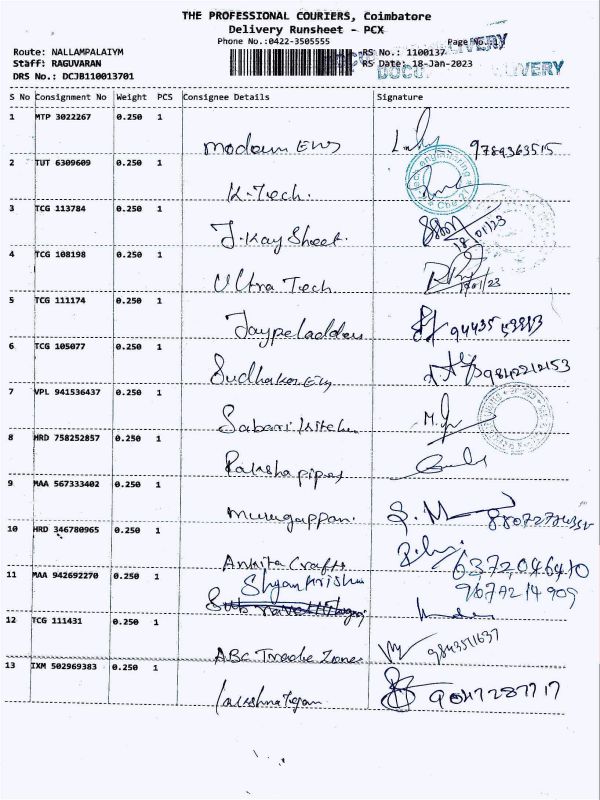 THE PROFESSIONAL COURIERS, Coimbatore
Delivery Runsheet - PCX
Phone No.:0422-3505555
Route: NALLAMPALAIYM
RS No.: 1100137
Staff: RAGUVARAN
RS Date: 18-Jan-2023
DRS No.: DCJB110013701
S No Consignment No Weight PCS Consignee Details Signature
1 MTP 3022267 0.250 1
Modern EWS 9789363515
2 TUT 6309609 0.250 1
K-Tech.
3 TCG 113784 0.250 1
J.Kay Sheet. 18/01/23
4 TCG 108198 0.250 1
Ultra Tech
5 TCG 111174 0.250 1
Jaypeladders
6 TCG 105077 0.250 1
Sudhakar 9842212153
7 VPL 941536437 0.250 1
Sabari Kitchen
8 HRD 758252857 0.250 1
Raksha pipes
9 MAA 567333402 0.250 1
Murugappan.
10 HRD 346780965 0.250 1
Ankita Crafts 6372046410
11 MAA 942692270 0.250 1
Shyam Krishna
12 TCG 111431 0.250 1
ABC Trade Zones 9843511637
13 IXM 502969383 0.250 1
9047287717